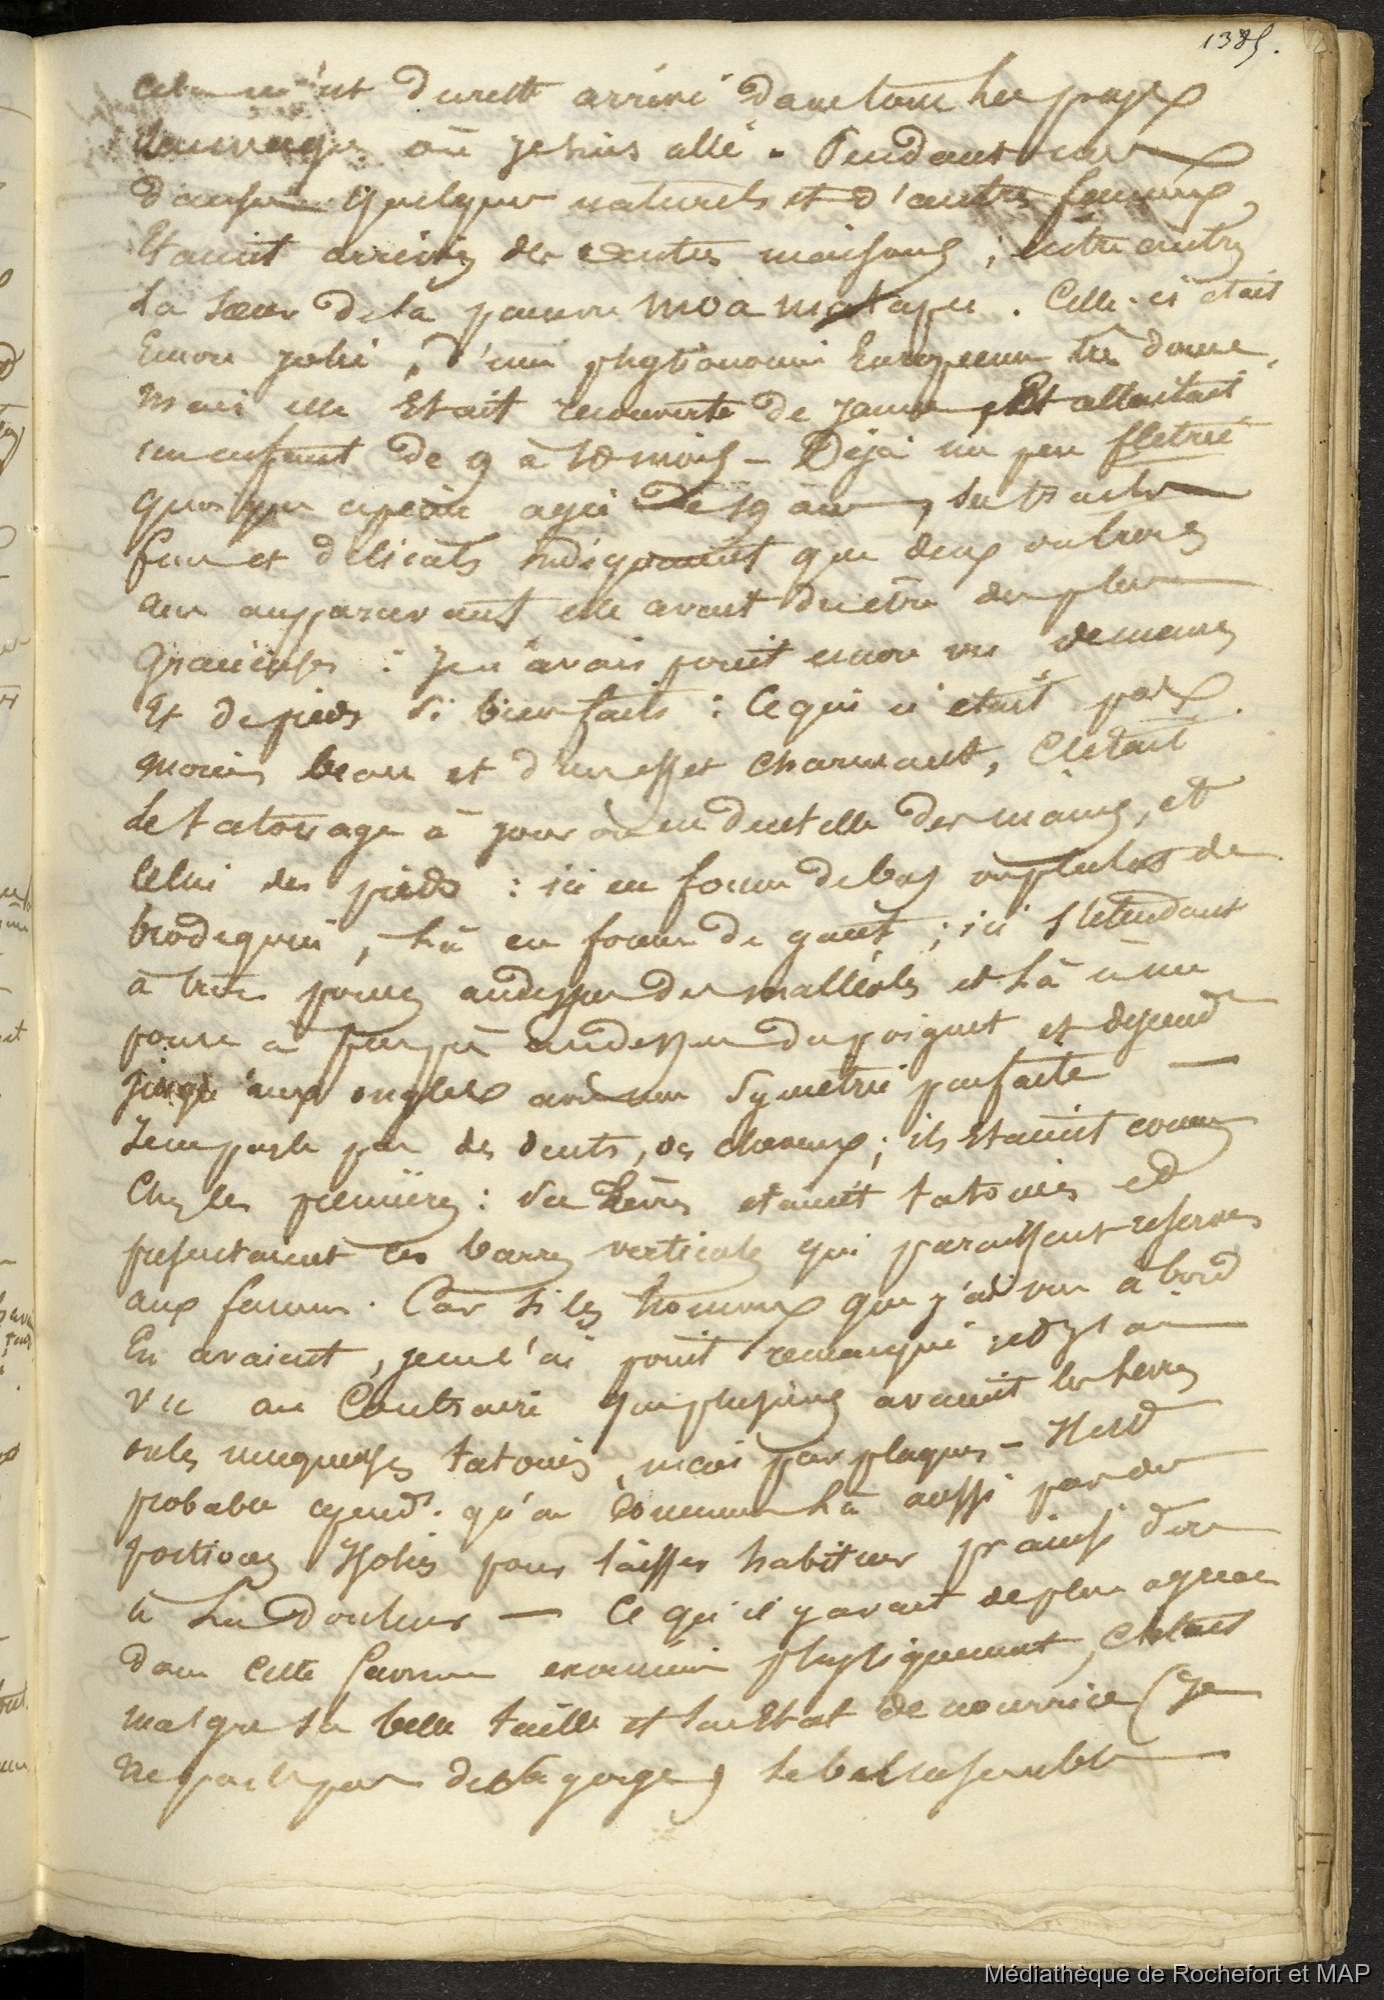 1385.
cela m'est du reste arrivé dans tous les pays
sauvages où je suis allé. Pendant ces
danses quelques naturels et d'autres femmes,
Etaient arrivés des autres maisons ; entre autres
La sœur de la pauvre moa motapu. Celle-ci était
Encore jolie, d'une physionomie Européenne très douce,
mais elle Etait recouverte de jaune, Et allaitait
un enfant de 9 à 10 mois - Déjà un peu flétrie
quoique à peine agée de 19 ans, ses traits
fins et délicats indiquaient que deux ou trois
ans auparavant elle avait du être des plus
Gracieuses : Je n'avais point encore vu de mains
Et de pieds si bien faits : Ce qui n'était pas
moins beau et d'un effet charmant, C'etait
Le tatouage à jour ou en dentelle des mains, et
Celui des pieds : ici en forme de bas ou plutot de
brodequin, Là en forme de gant ; ici s'étendant
à trois pouces au dessus des malléoles et Là à un
pouce à peu près au dessus du poignet et descend
jusqu'aux ongles avec une symetrie parfaite —
Je ne parle pas des dents, des cheveux ; ils Etaient comme
Chez les premières : Ses Lèvres étaient tatouées et
présentaient les barres verticales qui paraissent reservées
aux femmes. Car si les hommes que j'ai vus à bord
En avaient, je ne l'ai point remarqué et j'ai
vu au Contraire que plusieurs avaient les Levres
ou les muqueuses tatouées, mais par plaques - Il est
probable cepend.t qu'on Commence Là aussi par des
portions Isolées pour laisser habituer p.r ainsi dire
à La Douleur — Ce qu'il y avait de plus agréable
dans Cette femme examinée physiquement, C'etait
malgré sa belle taille et son Etat de nourrice (Je
ne parle pas de la gorge) Le bel ensemble
Médiathèque de Rochefort et MAP